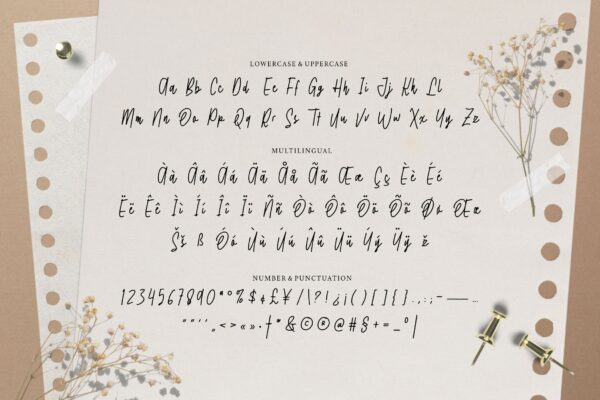 LOWERCASE & UPPERCASE
Aa Bb Cc Dd Ee Ff Gg Hh Ii Jj Kk Ll
Mm Nn Oo Pp Qq Rr Ss Tt Uu Vv Ww Xx Yy Zz
MULTILINGUAL
Àà Ââ Áá Ää Åå Ãã Ææ Çç Èè Éé
Ëë Êê Ìì Íí Îî Ïï Ññ Òò Ôô Öö Õõ Øø Œœ
Šš ß Óó Ùù Úú Ûû Üü Ýý Ÿÿ ž
NUMBER & PUNCTUATION
1234567890*°%$¢£¥/|\?!¿¡()[]{}.,:;-—…
""'',,<>«»·†*&©®@#§+=_°|